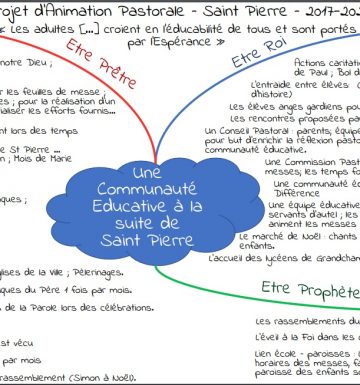 rojet d'Animation Pastorale - Saint Pierre - 2017-202
« Les adultes [...] croient en l'éducabilité de tous et sont portés
par l'Espérance »
Etre Prêtre
Etre Roi
notre Dieu ;
les feuilles de messe ;
; pour la réalisation d'un
les efforts fournis...
nt lors des temps
e St Pierre ...
; Mois de Marie
ques ;
lises de la Ville ; Pèlerinages.
ques du Père 1 fois par mois.
de la Parole lors des célébrations.
est vécu
par mois
rassemblement (Simon à Noël).
Une
Communauté
Educative à la
suite de
Saint Pierre
Actions caritati
de Paul ; Bol d
L'entraide entre élèves
d'histoire)
Les élèves anges gardiens pou
Les rencontres proposées pa
Un Conseil Pastoral : parents; équip
pour but d'enrichir la réflexion pastor
communauté éducative.
Une Commission Pasto
messes; les temps fo
Une communauté é
Différence
Une équipe éducative
servants d'autel ; les
animent les messes
Le marché de Noël : chants
enfants.
L'accueil des lycéens de Grandcham
Etre Prophète
Les rassemblements du
L'éveil à la Foi dans les c
Lien école - paroisses : L
horaires des messes, fa
paroisse des enfants sc